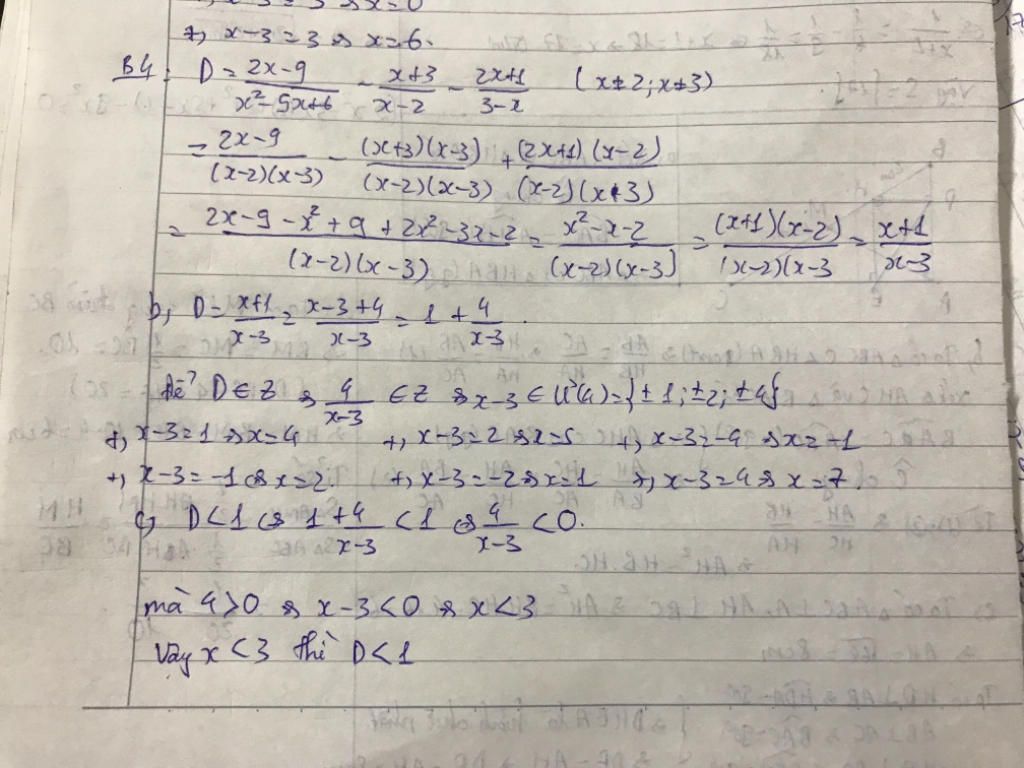 +, x-3=3 ⇔ x=6.
B4: D = (2x-9)/(x²-5x+6) - (x+3)/(x-2) - (2x+1)/(3-x) (x≠2; x≠3)
= (2x-9)/((x-2)(x-3)) - ((x+3)(x-3))/((x-2)(x-3)) + ((2x+1)(x-2))/((x-2)(x-3))
= (2x-9-x²+9+2x²-3x-2)/((x-2)(x-3)) = (x²-x-2)/((x-2)(x-3)) = ((x+1)(x-2))/((x-2)(x-3) = (x+1)/(x-3)
b, D = (x+1)/(x-3) = (x-3+4)/(x-3) = 1 + 4/(x-3).
Để D ∈ Z ⇔ 4/(x-3) ∈ Z ⇔ x-3 ∈ Ư(4) = {±1; ±2; ±4}
+, x-3=1 ⇔ x=4 +, x-3=2 ⇔ x=5 +, x-3=-4 ⇔ x=-1
+, x-3=-1 ⇔ x=2. +, x-3=-2 ⇔ x=1 +, x-3=4 ⇔ x=7.
c, D<1 ⇔ 1+4/(x-3) <1 ⇔ 4/(x-3) <0.
mà 4>0 ⇔ x-3<0 ⇔ x<3
Vậy x<3 thì D<1